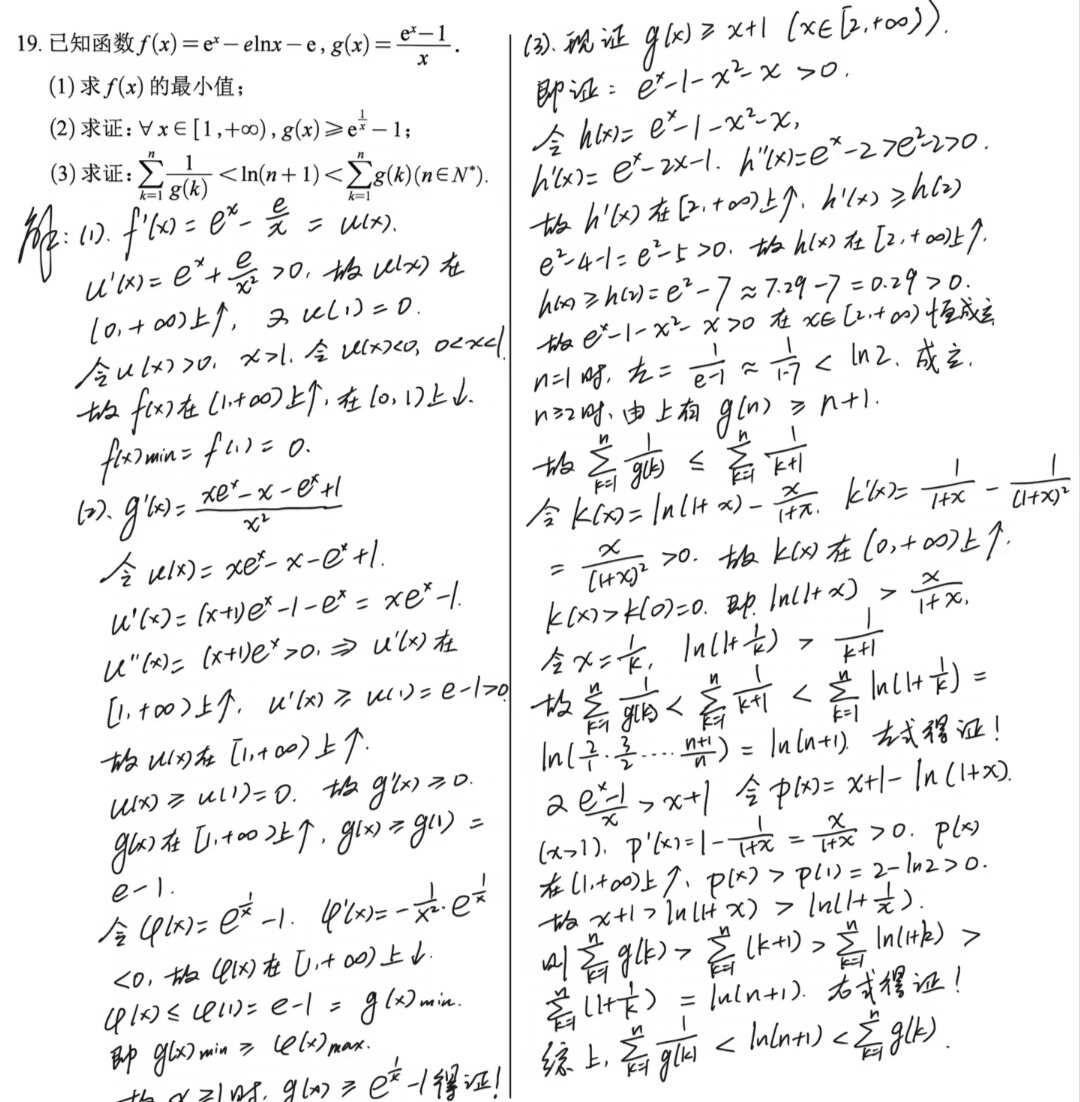 19. 已知函数 f(x)=eˣ-elnx-e, g(x)=(eˣ-1)/x.
(1) 求 f(x) 的最小值;
(2) 求证:∀x∈[1,+∞), g(x)≥e^(1/x)-1;
(3) 求证:∑_{k=1}^{n} 1/g(k) <ln(n+1)< ∑_{k=1}^{n} g(k)(n∈N*).
解: (1). f'(x)=eˣ-e/x = u(x).
u'(x)=eˣ+e/x²>0, 故 u(x) 在
(0,+∞)上↑, 又 u(1)=0.
令 u(x)>0, x>1. 令 u(x)<0, 0<x<1.
故 f(x)在(1+∞)上↑, 在(0,1)上↓.
f(x)min=f(1)=0.
(2). g'(x)=(xeˣ-x-eˣ+1)/x²
令 u(x)=xeˣ-x-eˣ+1.
u'(x)=(x+1)eˣ-1-eˣ=xeˣ-1.
u''(x)=(x+1)eˣ>0, ⇒ u'(x)在
[1,+∞)上↑, u'(x)≥u(1)=e-1>0
故 u(x)在[1,+∞)上↑.
u(x)≥u(1)=0. 故 g'(x)≥0.
g(x)在[1,+∞)上↑, g(x)≥g(1)=
e-1.
令 φ(x)=e^(1/x)-1. φ'(x)=-1/x²·e^(1/x)
<0, 故 φ(x)在[1,+∞)上↓.
φ(x)≤φ(1)=e-1=g(x)min.
即 g(x)min≥φ(x)max.
故 x≥1时, g(x)≥e^(1/x)-1得证!
(3). 现证 g(x)≥x+1 (x∈[2,+∞)).
即证: eˣ-1-x²-x>0.
令 h(x)=eˣ-1-x²-x,
h'(x)=eˣ-2x-1. h''(x)=eˣ-2>e²-2>0.
故 h'(x)在[2,+∞)上↑, h'(x)≥h(2)
e²-4-1=e²-5>0. 故 h(x)在[2,+∞)上↑.
h(x)≥h(2)=e²-7≈7.29-7=0.29>0.
故 eˣ-1-x²-x>0 在 x∈[2,+∞)恒成立
n=1时, 左=1/(e-1)≈1/1.7<ln2. 成立.
n≥2时, 由上有 g(n)≥n+1.
故 ∑_{k=1}^{n} 1/g(k) ≤ ∑_{k=1}^{n} 1/(k+1)
令 k(x)=ln(1+x)-x/(1+x). k'(x)=1/(1+x)-1/(1+x)²
=x/(1+x)²>0. 故 k(x)在(0,+∞)上↑.
k(x)>k(0)=0. 即 ln(1+x)>x/(1+x).
令 x=1/k, ln(1+1/k)>1/(k+1)
故 ∑_{k=1}^{n} 1/g(k) < ∑_{k=1}^{n} 1/(k+1) < ∑_{k=1}^{n} ln(1+1/k)=
ln(2/1·3/2·…·(n+1)/n)=ln(n+1). 左式得证!
又 (eˣ-1)/x>x+1 令 p(x)=x+1-ln(1+x).
(x>1). p'(x)=1-1/(1+x)=x/(1+x)>0. p(x)
在(1,+∞)上↑, p(x)>p(1)=2-ln2>0.
故 x+1>ln(1+x)>ln(1+1/x).
则 ∑_{k=1}^{n} g(k)>∑_{k=1}^{n}(k+1)>∑_{k=1}^{n} ln(1+k)>
∑_{k=1}^{n}(1+1/k)=ln(n+1). 右式得证!
综上, ∑_{k=1}^{n} 1/g(k)<ln(n+1)<∑_{k=1}^{n} g(k).